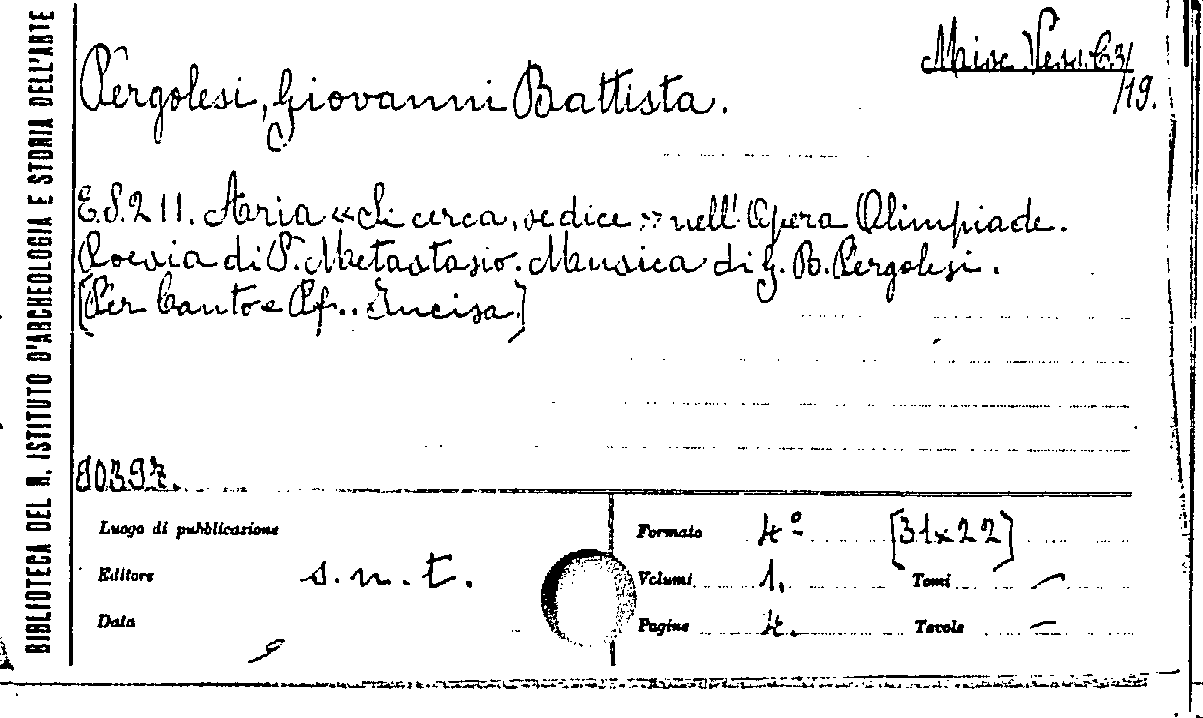 BIBLIOTECA DEL R. ISTITUTO D'ARCHEOLOGIA E STORIA DELL'ARTE
Misc. Vess. C. 3/
/19.
Pergolesi, Giovanni Battista.
E.S. 211. Aria «Se cerca, se dice» nell'Opera Olimpiade.
Poesia di P. Metastasio. Musica di G. B. Pergolesi.
[Per Canto e Pf.. Incisa.]
80397.
Luogo di pubblicazione
Editore s. n. t.
Data
Formato 4º [31x22]
Volumi 1. Tomi –
Pagine 4. Tavole –